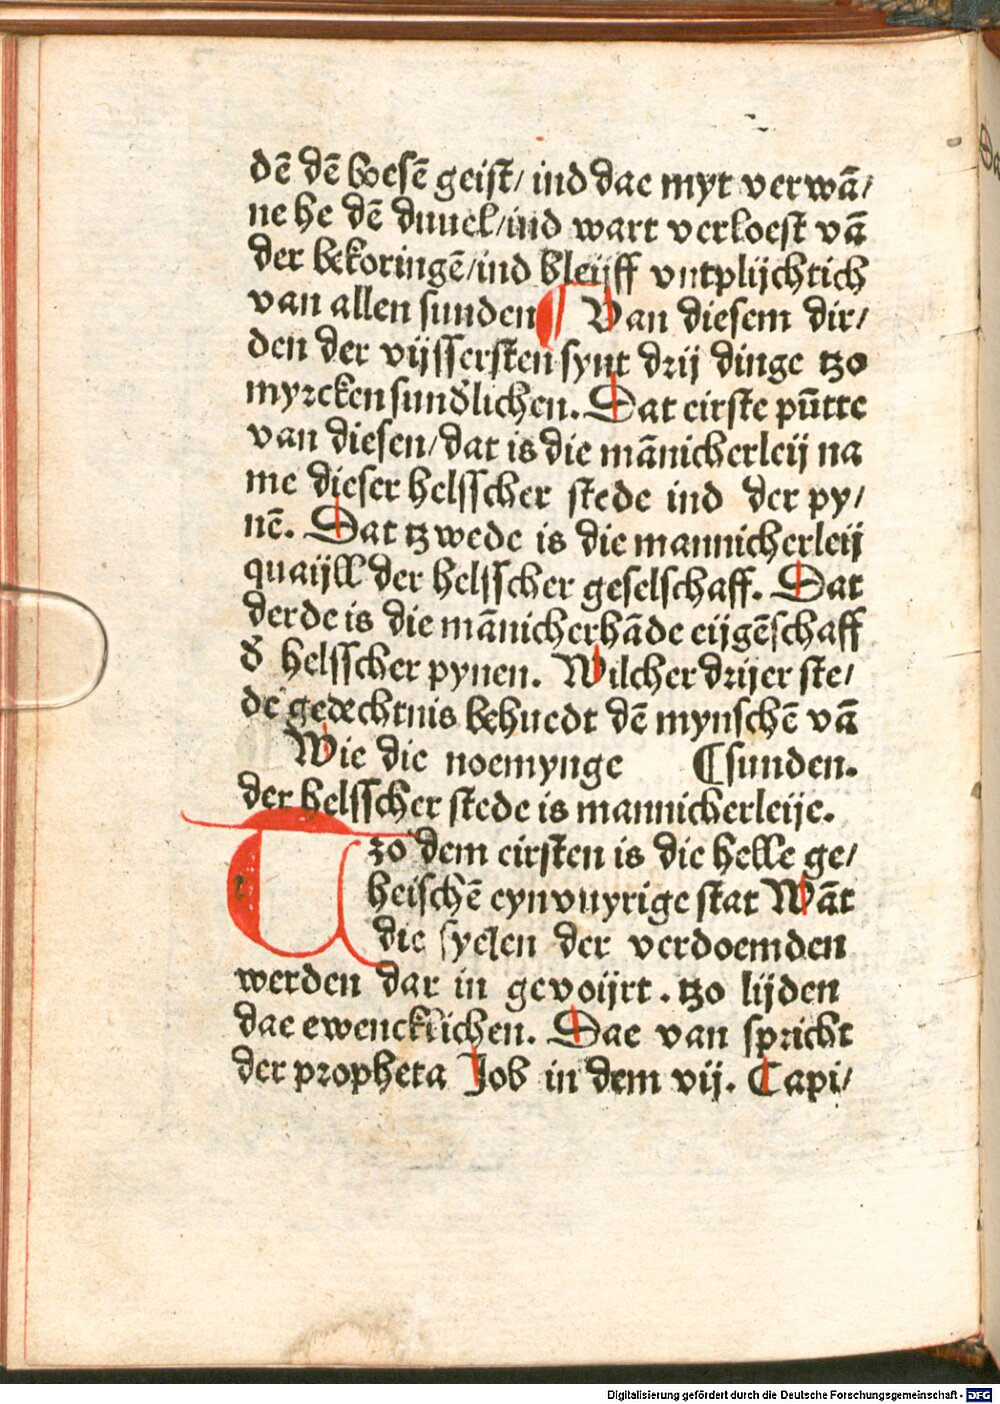 dē dē boesē geist/ ind dae myt verwā/
ne he dē duuel/ind wart verloest vā
der bekoringē/ind bleijff vntplijchtich
van allen sunden Van diesem dir/
den der vijssersten synt drij dinge tzo
myrcken sunđlichen. Dat eirste pūtte
van diesen/dat is die mānicherleij na
me dieser helsscher stede ind der py/
nē. Dat tzwede is die mannicherleij
quaijll der helsscher geselschaff. Dat
derde is die mānicherhāde eijgēschaff
đ helsscher pynen. Wilcher drijer ste/
de gedechtnis behuedt dē mynschē vā
Wie die noemynge ⸿sunden.
der helsscher stede is mannicherleije.
Tzo dem eirsten is die helle ge/
heischē eynvuyrige stat Wāt
die syelen der verdoemden
werden dar in gevoijrt. tzo lijden
dae ewencklichen. Dae van spricht
der propheta Job in dem vij. Capi/
Digitalisierung gefördert durch die Deutsche Forschungsgemeinschaft - DFG